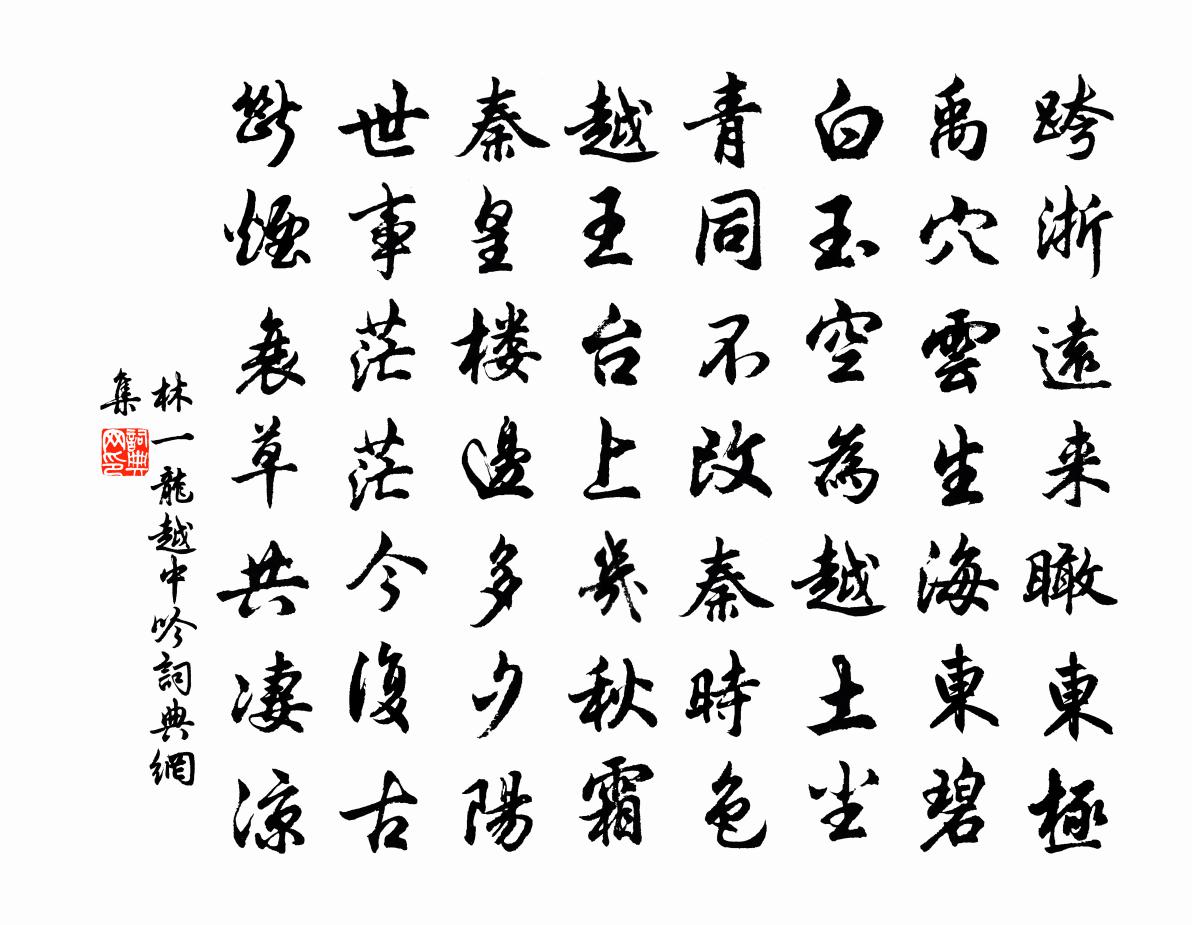 跨浙遠来瞰東極
禹穴雲生海東碧
白玉空為越土尘
青同不改秦時色
越王台上幾秋霜
秦皇楼邊多夕陽
世事茫茫今復古
断煙衰草共凄涼
林一龍越中吟詞典網
集
詞典网印